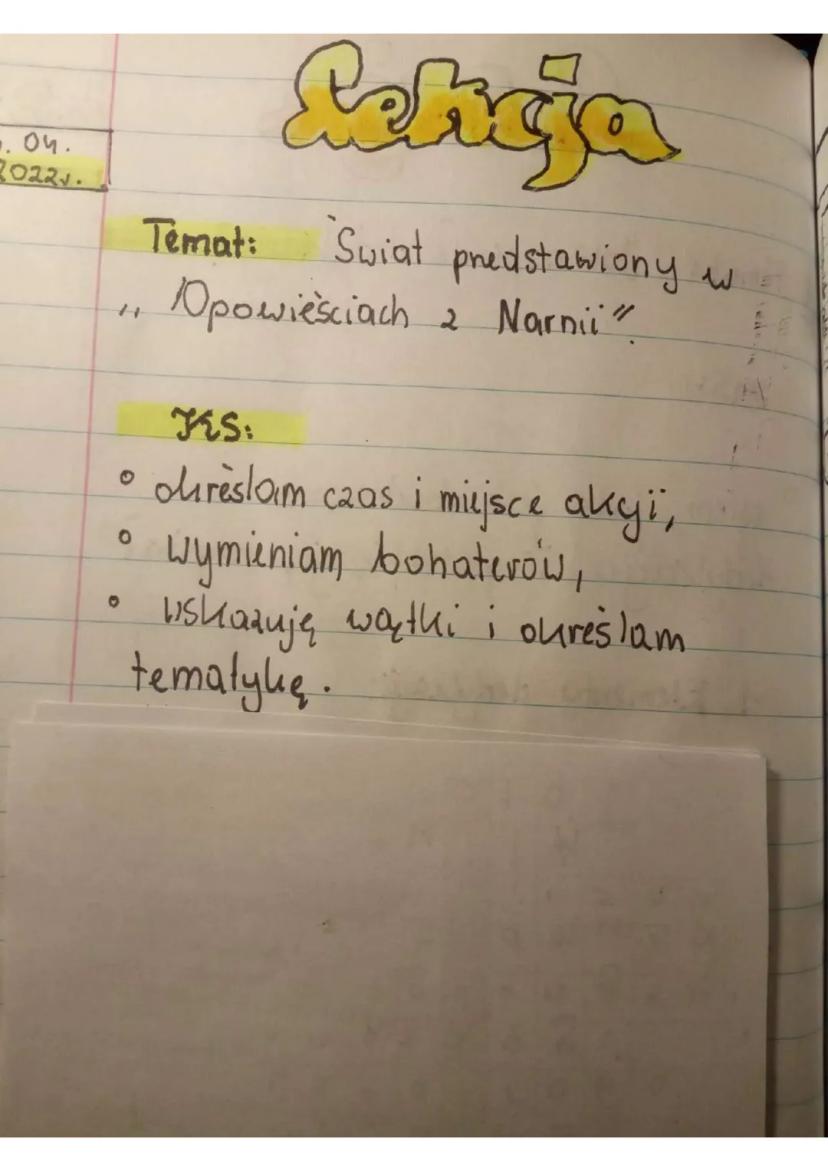 Lekcja
. 04.
2022r.
Temat: Świat przedstawiony w
„ Opowieściach z Narnii”.
KS:
° określam czas i miejsce akcji,
° wymieniam bohaterów,
° wskazuję wątki i określam
tematykę.